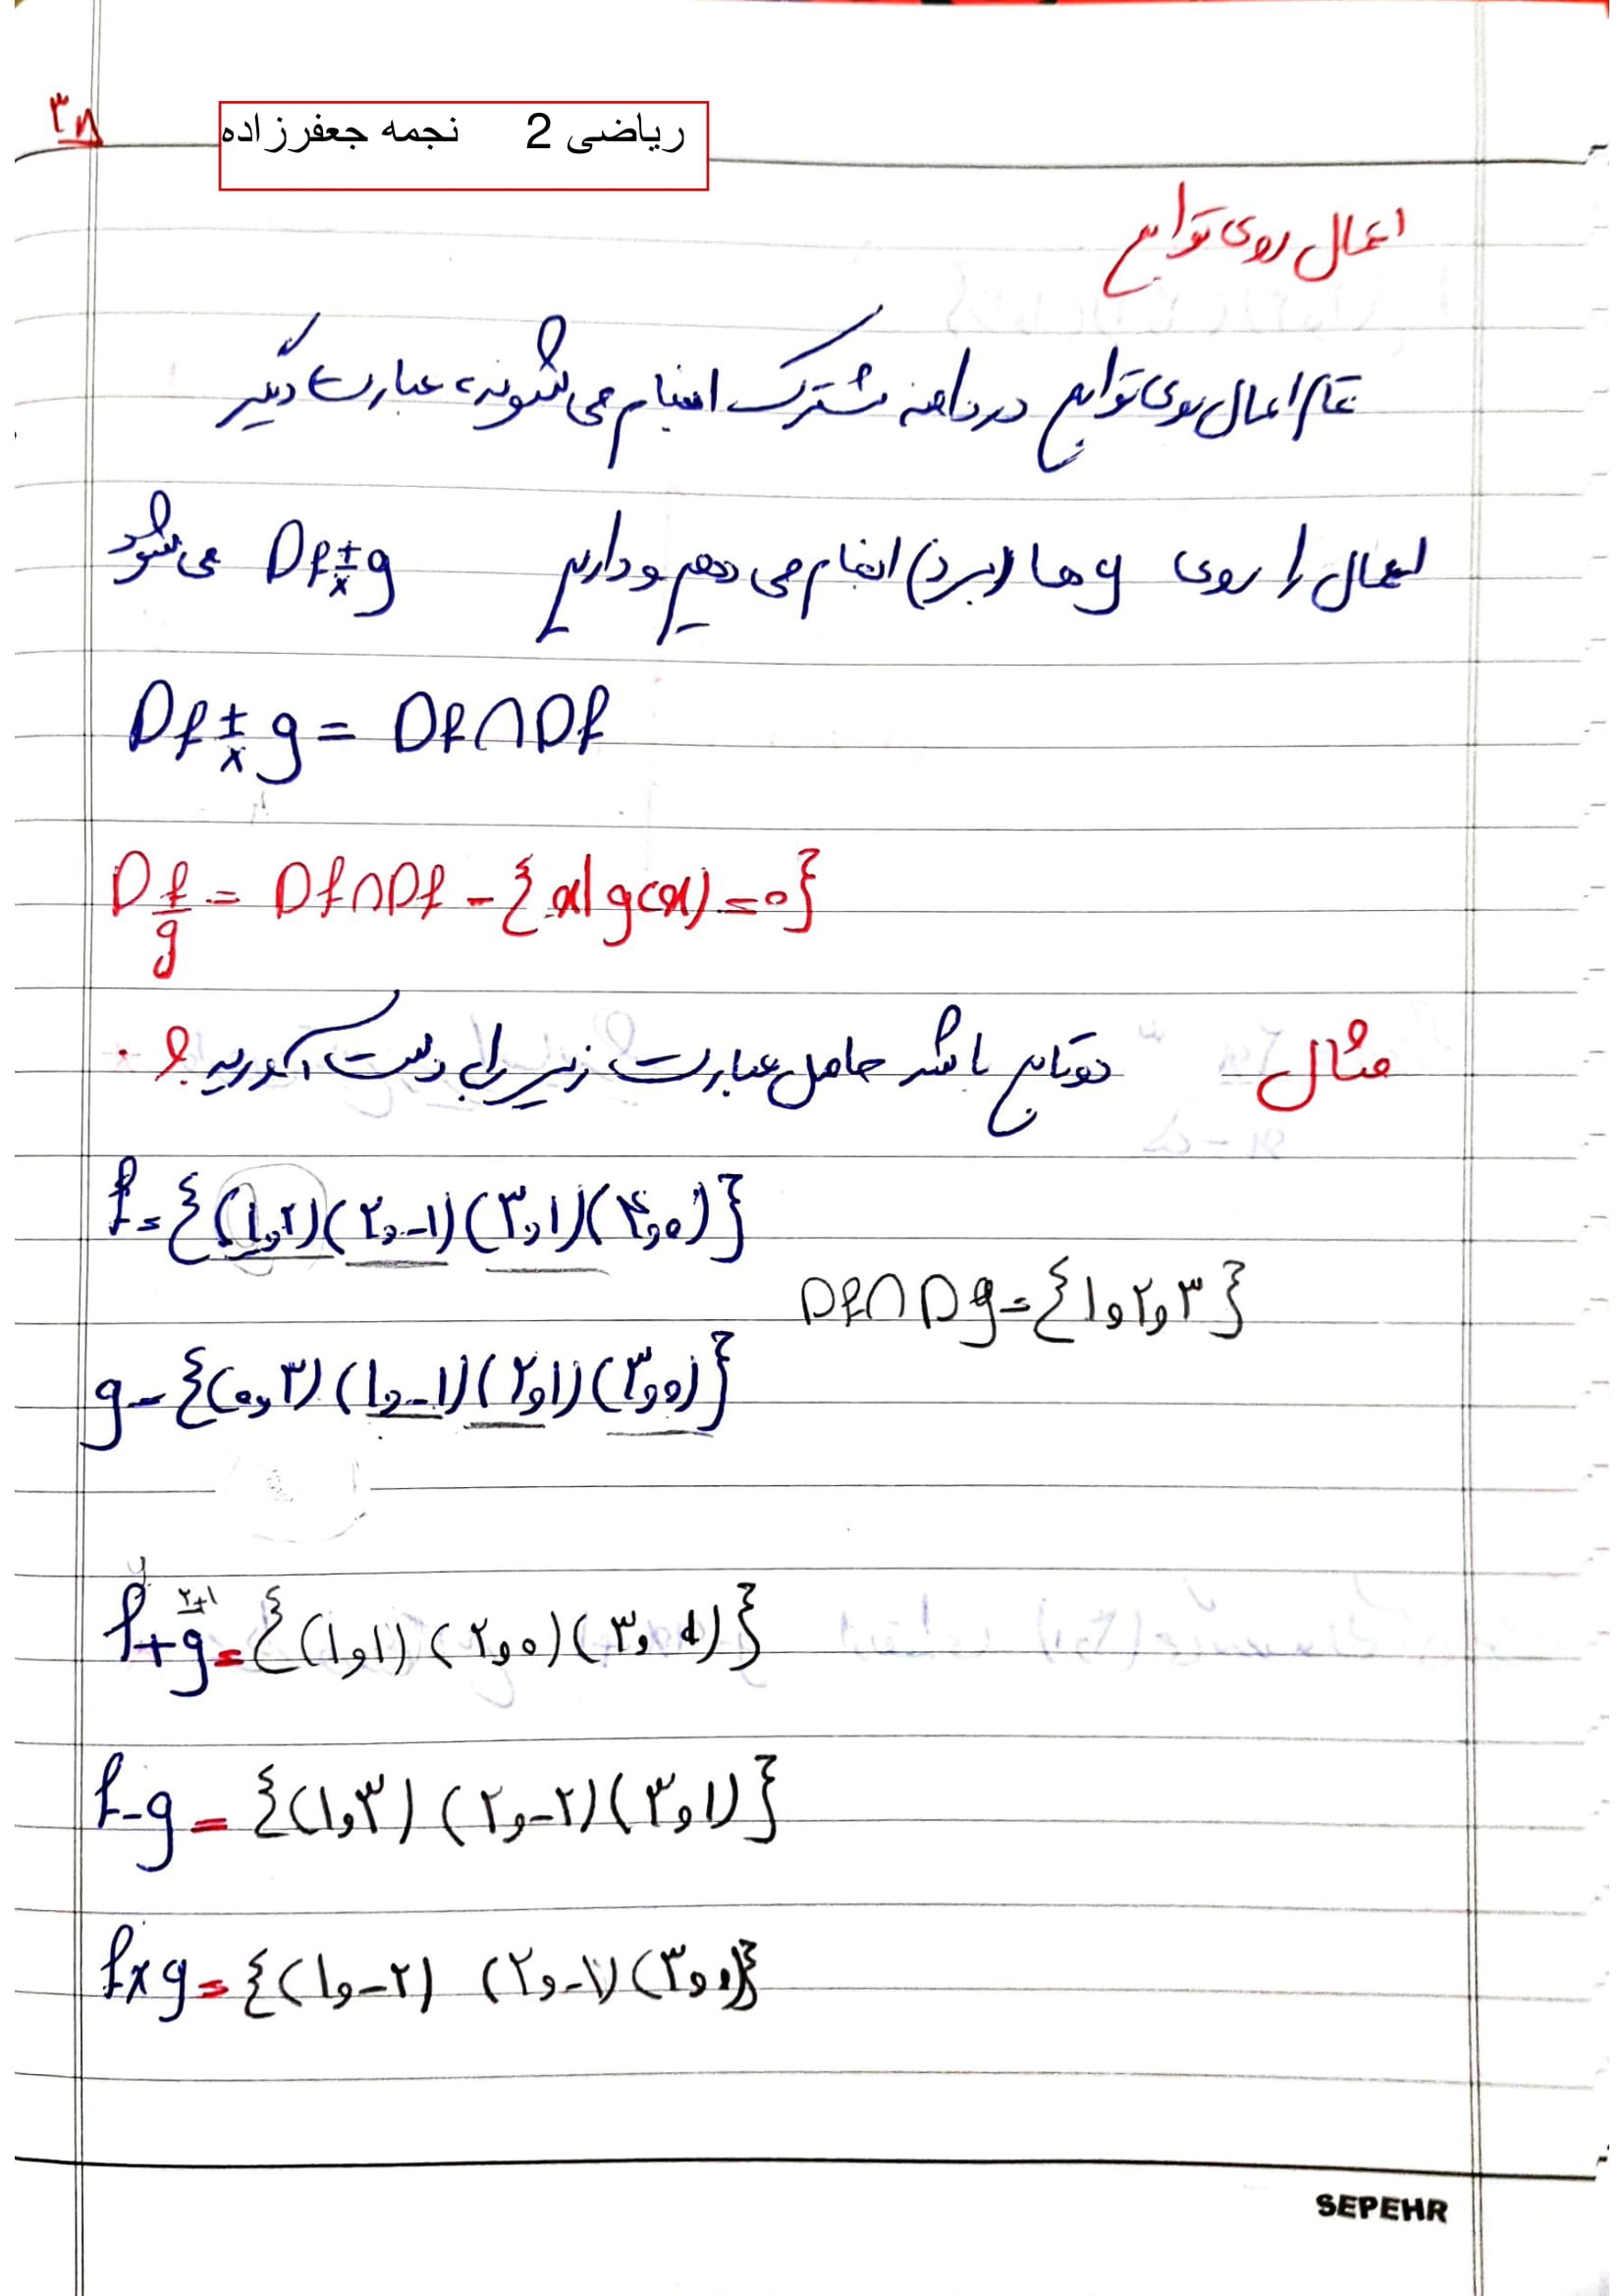 ۳۸
ریاضی 2 نجمه جعفرزاده
اعمال روی توابع
تمام اعمال روی توابع در دامنه مشترک انجام می شوند، عبارت دیگر
اعمال را روی y ها (برد) انجام می دهیم و داریم Df±×g می شود
Df±×g = Df∩Df
Df/g = Df∩Df - {x|g(x) = ۰}
مثال دو تابع باشد حاصل عبارت زیر را بدست آورید؟
f = {(۱,۲)(۲,-۱)(۳,۱)(۴,۰)}
Df∩Dg = {۱,۲,۳}
g = {(۰,۳)(۱,-۱)(۲,۱)(۳,۰)}
۲+۱
f+g = {(۱,۱)(۲,۰)(۳,۱)}
f-g = {(۱,۳)(۲,-۲)(۳,۱)}
f×g = {(۱,-۲)(۲,-۱)(۳,۰)}
SEPEHR